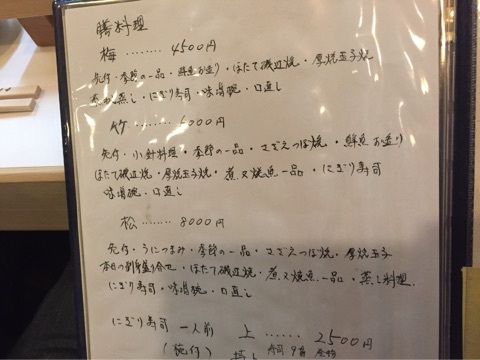 膳料理
梅 ........ 4500円
先付・季節の一品・鮮魚お造り・ほたて磯辺焼・厚焼玉子焼
茶わん蒸し・にぎり寿司・味噌椀・口直し
竹 ........ 6000円
先付・小鉢料理・季節の一品・さざえつぼ焼・鮮魚お造り
ほたて磯辺焼・厚焼玉子焼・煮又焼魚一品・にぎり寿司
味噌椀・口直し
松 ........ 8000円
先付・うにつまみ・季節の一品・さざえつぼ焼・厚焼玉子
本日の刺身盛り合せ・ほたて磯辺焼・煮又焼魚一品・蒸し料理
にぎり寿司・味噌椀・口直し
にぎり寿司 一人前 上 ...... 2500円